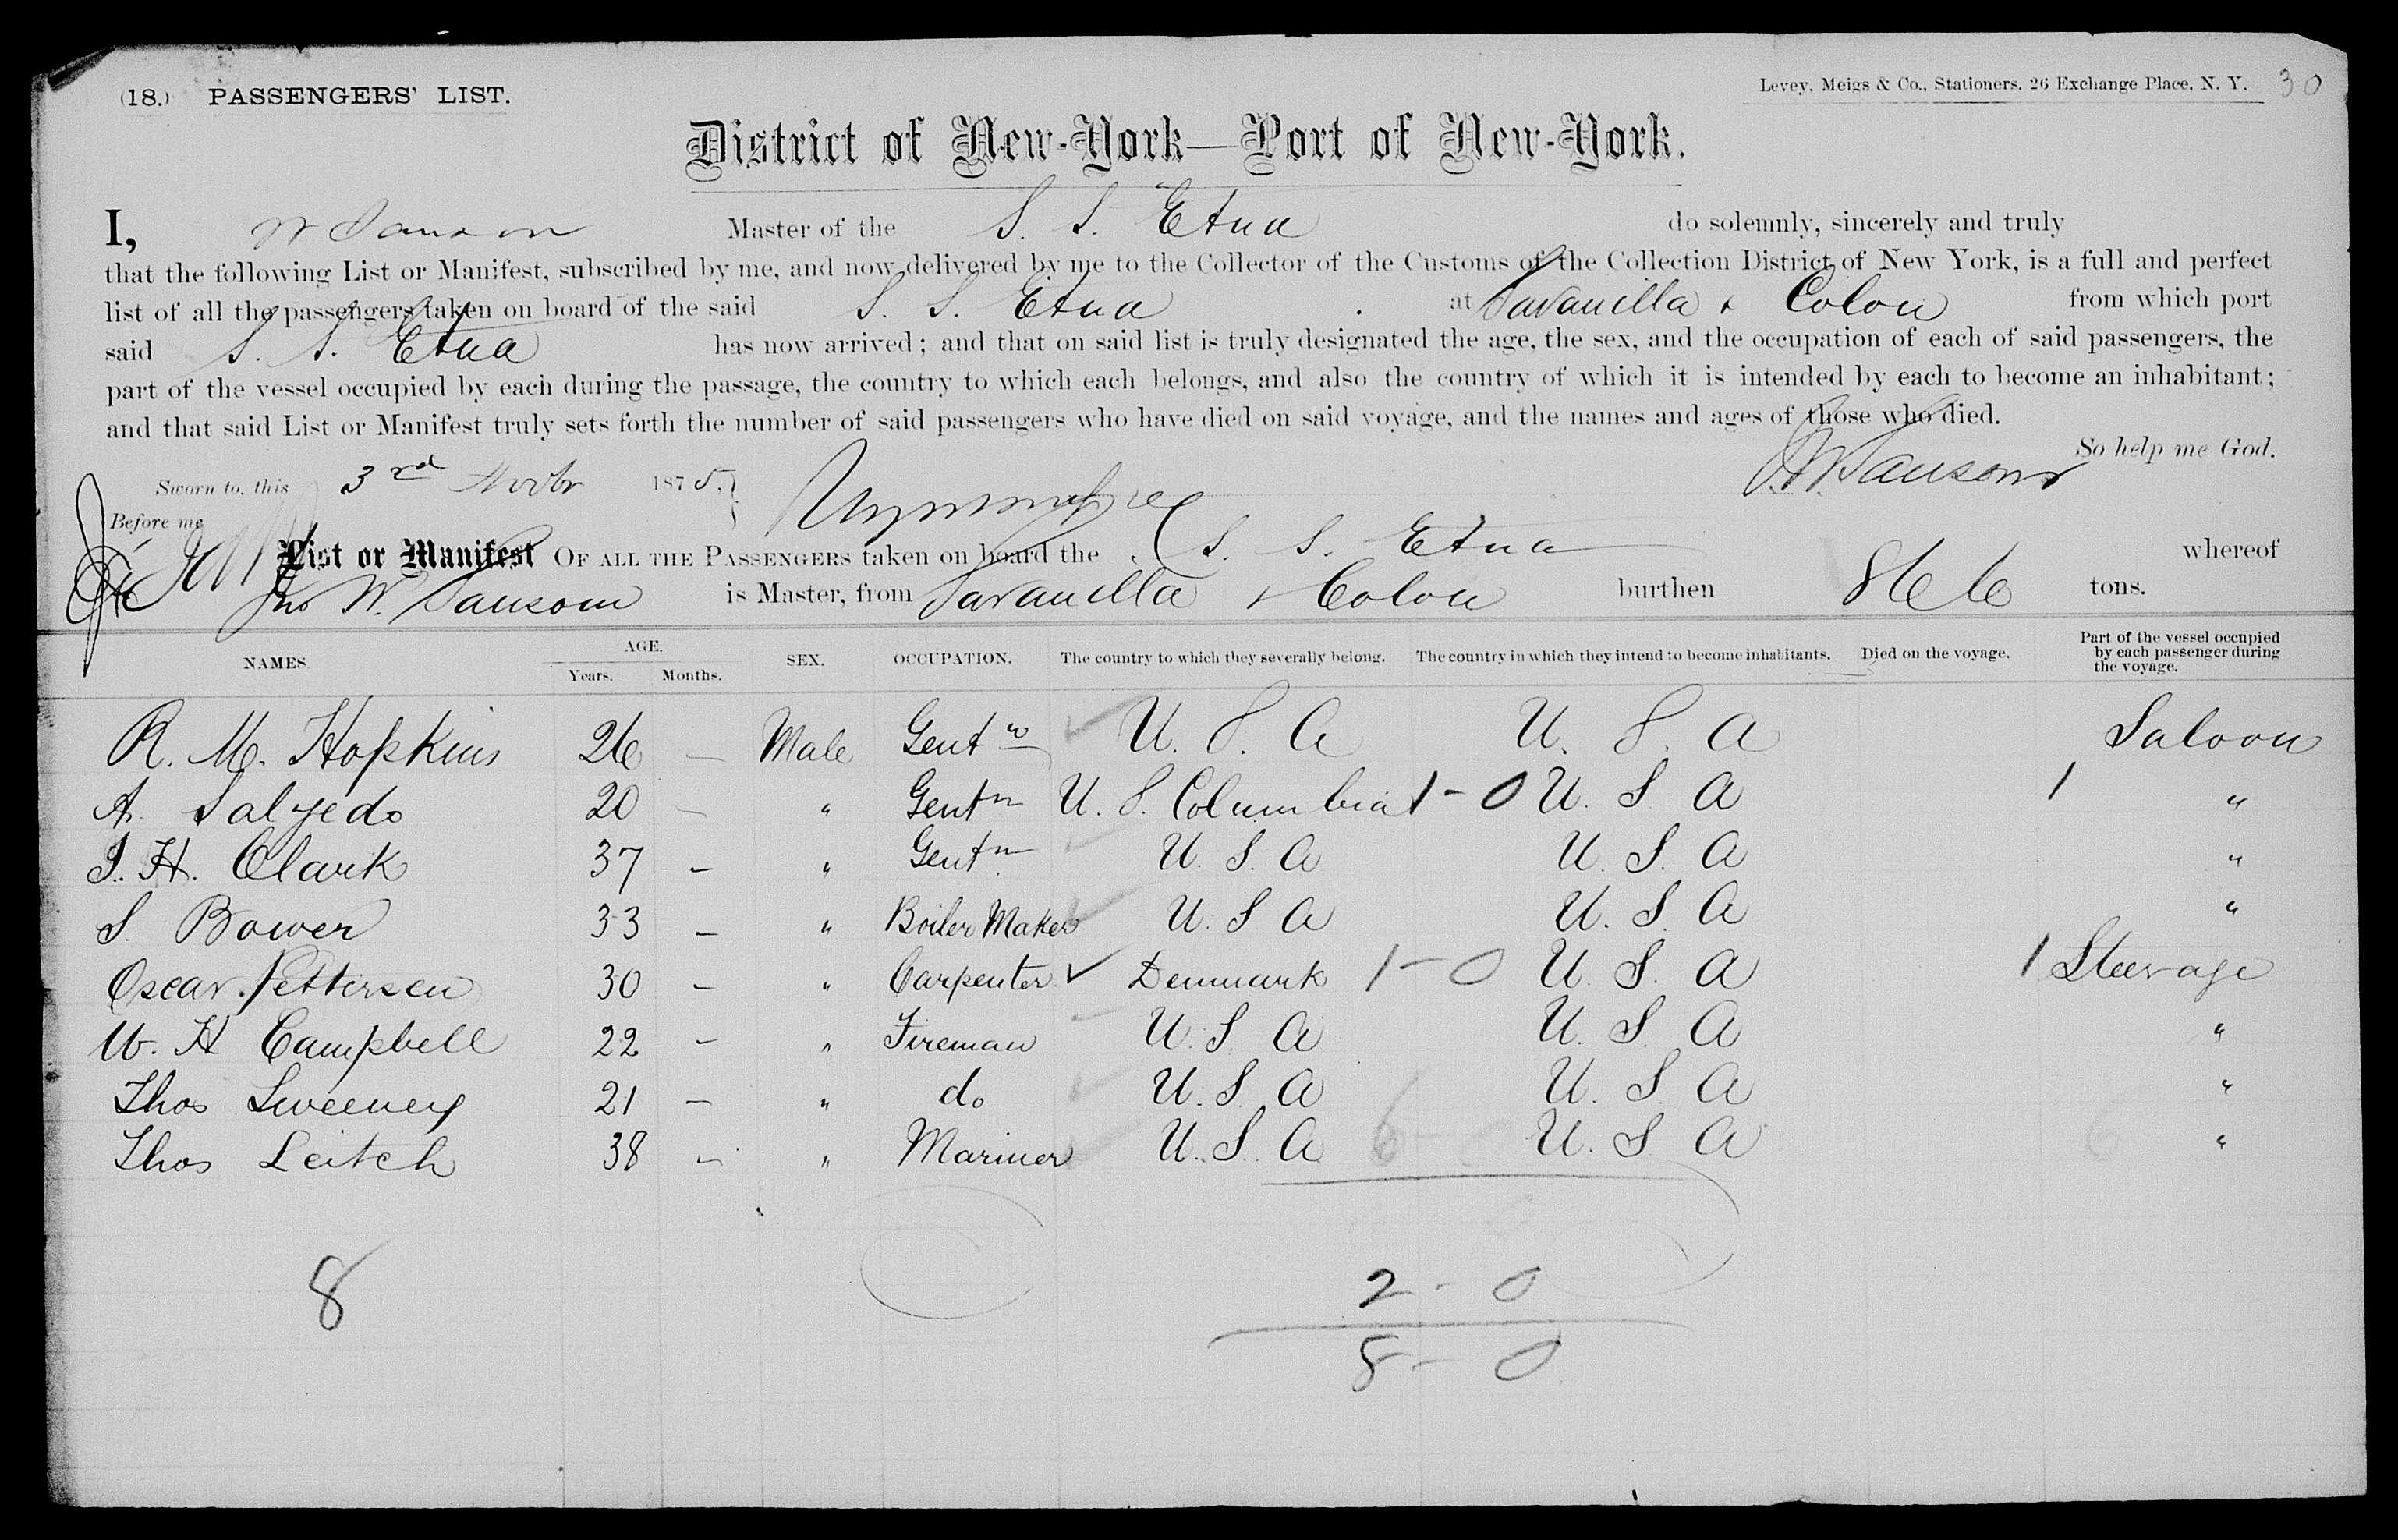 (18.) PASSENGERS' LIST.
Levey, Meigs & Co., Stationers, 26 Exchange Place, N. Y. 30
District of New-York—Port of New-York.
I, W Sansom Master of the S. S. Etna do solemnly, sincerely and truly
that the following List or Manifest, subscribed by me, and now delivered by me to the Collector of the Customs of the Collection District of New York, is a full and perfect
list of all the passengers taken on board of the said S. S. Etna at Savanilla & Colon from which port
said S. S. Etna has now arrived; and that on said list is truly designated the age, the sex, and the occupation of each of said passengers, the
part of the vessel occupied by each during the passage, the country to which each belongs, and also the country of which it is intended by each to become an inhabitant;
and that said List or Manifest truly sets forth the number of said passengers who have died on said voyage, and the names and ages of those who died.
So help me God.
Sworn to, this 3rd Novbr 1875. J. W. Sansom
Before me
List or Manifest OF ALL THE PASSENGERS taken on board the S. S. Etna whereof
Jno W. Sansom is Master, from Savanilla & Colon burthen 866 tons.
NAMES. AGE. Years. Months. SEX. OCCUPATION. The country to which they severally belong. The country in which they intend to become inhabitants. Died on the voyage. Part of the vessel occupied by each passenger during the voyage.
R. M. Hopkins 26 — Male Gentn U. S. A U. S. A Saloon
A. Salzedo 20 — " Gentn U. S. Columbia 1-0 U. S A 1 "
J. H. Clark 37 — " Gentn U. S. A U. S. A "
S. Bower 33 — " Boiler Maker U. S A U. S. A "
Oscar Pettersen 30 — " Carpenter ✓ Denmark 1-0 U. S. A 1 Steerage
W. H Campbell 22 — " Fireman U. S A U. S A "
Thos Sweeney 21 — " do U. S. A U. S A "
Thos Leitch 38 — " Mariner U. S. A 6- U. S A 6 "
8
2-0
8-0